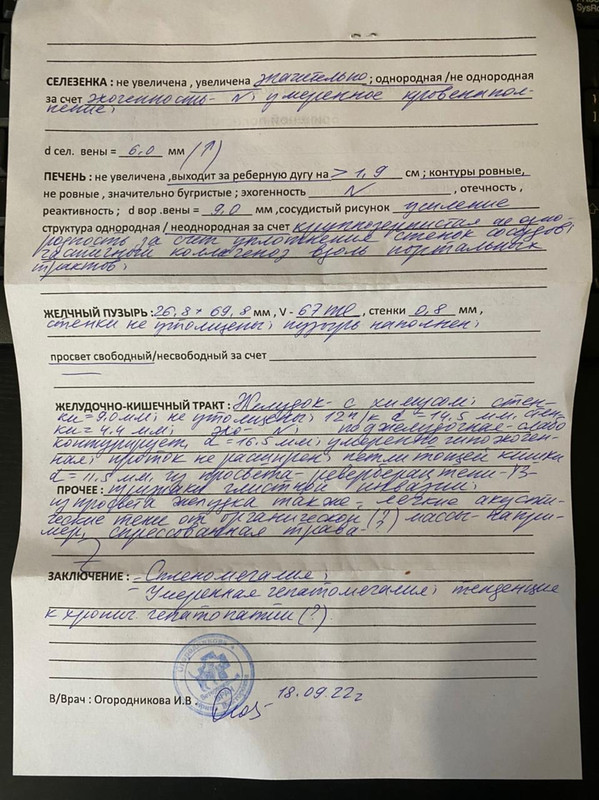 СЕЛЕЗЕНКА : не увеличена , увеличена значительно ; однородная /не однородная
за счет эхогенность - N ; умеренное кровенапол-
нение ;
d сел. вены = 6,0 мм (↑)
ПЕЧЕНЬ : не увеличена ,выходит за реберную дугу на > 1,9 см ; контуры ровные,
не ровные , значительно бугристые ; эхогенность N , отечность ,
реактивность ; d вор .вены = 9,0 мм ,сосудистый рисунок усиление
структура однородная / неоднородная за счет крупнозернистая неодно-
родность за счет уплотнения стенок сосудов ;
частичной коллагеноз вдоль портальных
трактов ;
ЖЕЛЧНЫЙ ПУЗЫРЬ : 26,8 * 69,8 мм , V - 67 ml , стенки 0,8 мм ,
стенки не утолщены ; пузырь наполнен ;
просвет свободный/несвободный за счет
ЖЕЛУДОЧНО-КИШЕЧНЫЙ ТРАКТ : Желудок - с химусом ; стен-
ки = 9,0 мм ; не утолщены ; 12п/к d = 14,5 мм, стен-
ки = 4,4 мм ; эхо - N ; поджелудочная - слабо
контурирует, d = 16,5 мм ; умеренно гипоэхоген-
ная ; проток не расширен, петли тощей кишки
d = 11,5 мм, из просвета - реверберац. тени -
ПРОЧЕЕ : признаки глистной инвазии ;
из просвета желудка также - легкие акусти-
ческие тени от органической (?) массы - напри-
мер, спрессованная трава -
ЗАКЛЮЧЕНИЕ : - Спленомегалия ;
- Умеренная гепатомегалия ; тенденция
к хронич. гепатопатии (?).
В/Врач : Огородникова И.В. 18.09.22г